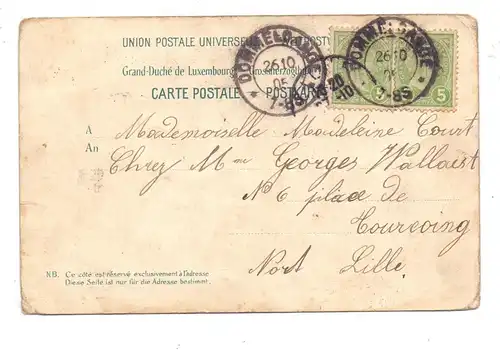 UNION POSTALE UNIVERSELLE
Grand-Duché de Luxembourg Grossherzogth
CARTE POSTALE POSTKARTE
DOMMELDANGE
26 10
05
7-8S
DOMMELDANGE
26 10
05
7-8S
5
A Mademoiselle Madeleine Court
An Chez Mme Georges Wallaert
No 6 place de
Tourcoing
Nort Lille
NB. Ce côté est réservé exclusivement à l'adresse
Diese Seite ist nur für die Adresse bestimmt.